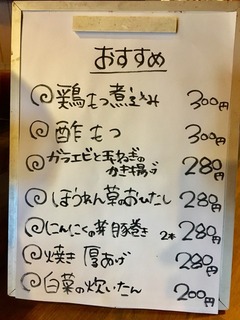 おすすめ
鶏もつ煮込み 300円
酢もつ 300円
ガラエビと玉ねぎの
かき揚げ 280円
ほうれん草のおひたし 280円
にんにくの芽豚巻き 2本 280円
焼き厚あげ 280円
白菜の炊いたん 200円